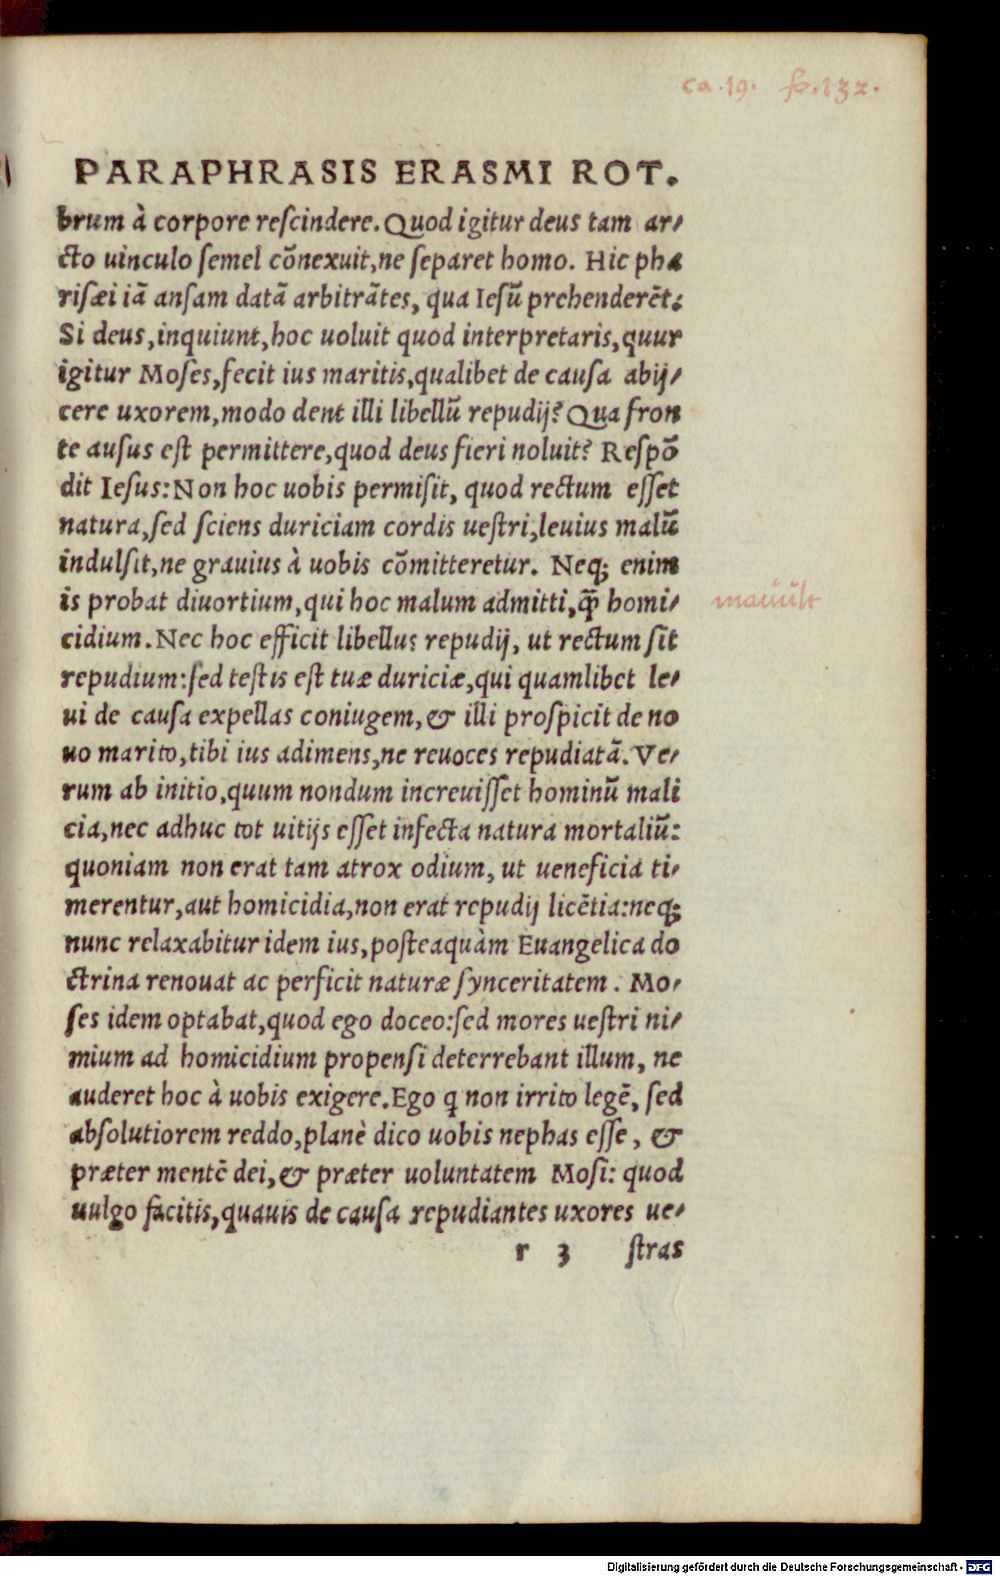 ca. 19. fo. 132.
PARAPHRASIS ERASMI ROT.
brum à corpore reſcindere. Quod igitur deus tam ar-
cto uinculo ſemel cõnexuit, ne ſeparet homo. Hic pha
riſæi iã anſam datã arbitrãtes, qua Ieſũ prehenderẽt.
Si deus, inquiunt, hoc uoluit quod interpretaris, quur
igitur Moſes, fecit ius maritis, qualibet de cauſa abij-
cere uxorem, modo dent illi libellũ repudij? Qua fron
te auſus eſt permittere, quod deus fieri noluit? Reſpõ
dit Ieſus: Non hoc uobis permiſit, quod rectum eſſet
natura, ſed ſciens duriciam cordis ueſtri, leuius malũ
indulſit, ne grauius à uobis cõmitteretur. Neq; enim
is probat diuortium, qui hoc malum admitti, q̃ homi-
mauult
cidium. Nec hoc efficit libellus repudij, ut rectum ſit
repudium: ſed teſtis eſt tuæ duriciæ, qui quamlibet le-
ui de cauſa expellas coniugem, & illi proſpicit de no
uo marito, tibi ius adimens, ne reuoces repudiatã. Ve-
rum ab initio, quum nondum increuiſſet hominũ mali
cia, nec adhuc tot uitijs eſſet infecta natura mortaliũ:
quoniam non erat tam atrox odium, ut ueneficia ti-
merentur, aut homicidia, non erat repudij licẽtia: neq;
nunc relaxabitur idem ius, poſteaquàm Euangelica do
ctrina renouat ac perficit naturæ ſynceritatem. Mo-
ſes idem optabat, quod ego doceo: ſed mores ueſtri ni-
mium ad homicidium propenſi deterrebant illum, ne
auderet hoc à uobis exigere. Ego q non irrito legẽ, ſed
abſolutiorem reddo, planè dico uobis nephas eſſe, &
præter mentẽ dei, & præter uoluntatem Moſi: quod
uulgo facitis, quauis de cauſa repudiantes uxores ue-
r 3 ſtras
Digitalisierung gefördert durch die Deutsche Forschungsgemeinschaft - DFG